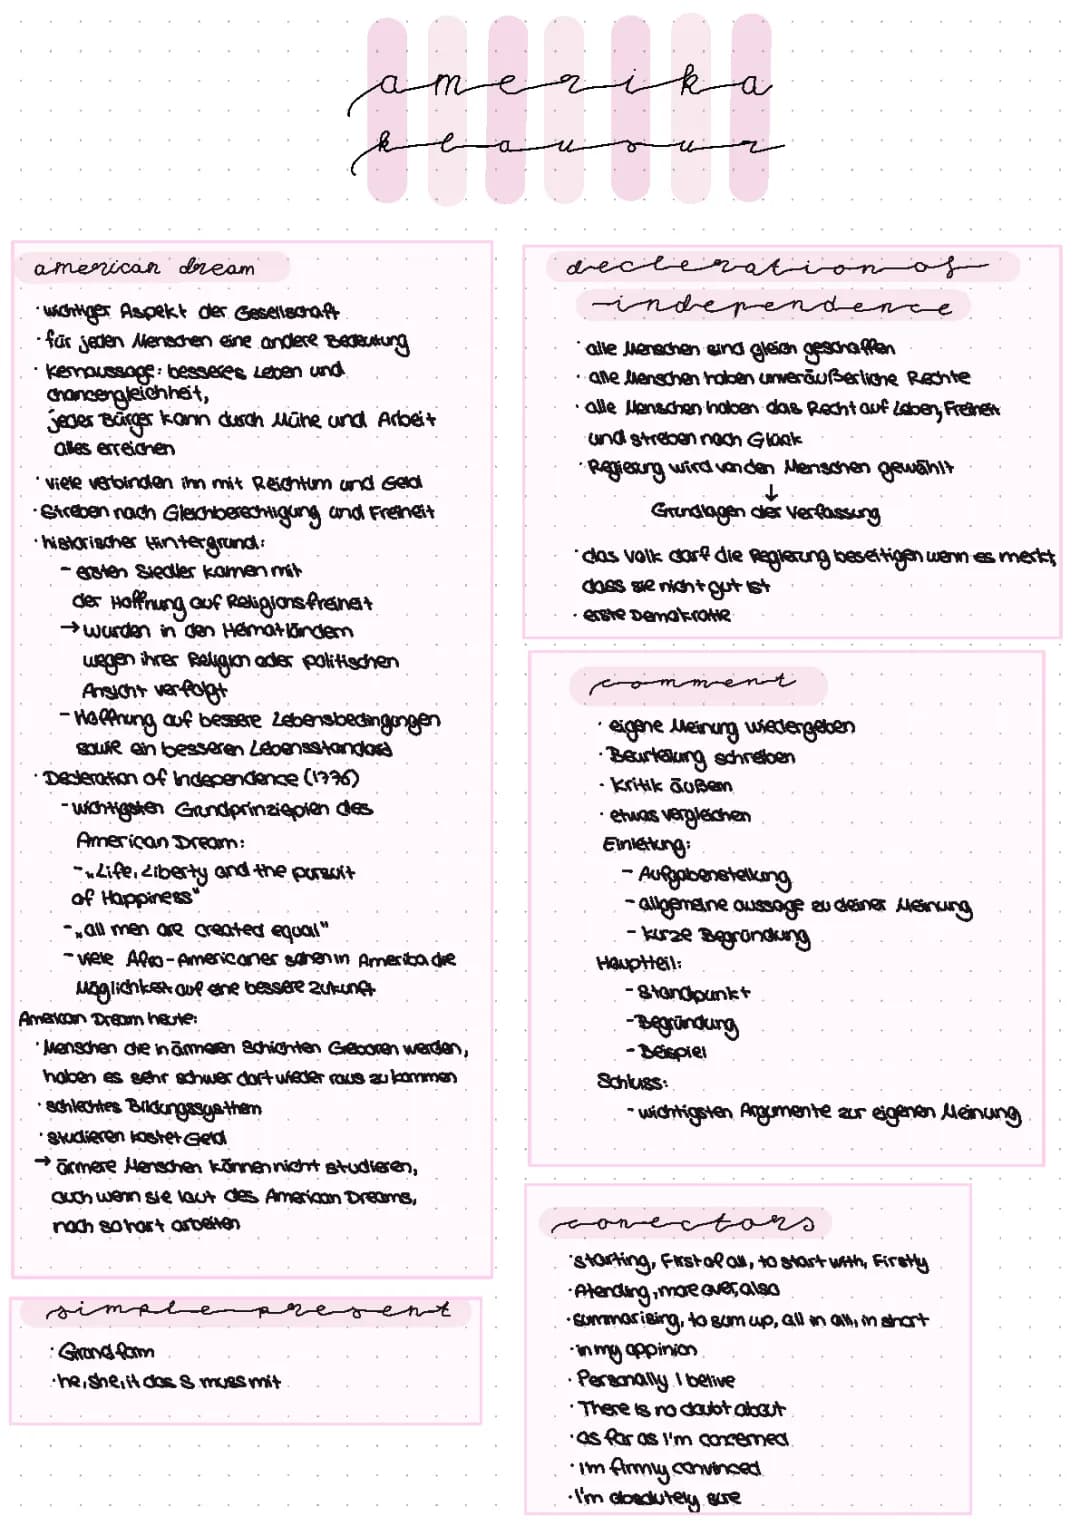 amerika
klausur
american dream
· wichtiger Aspekt der Gesellschaft
· für jeden Menschen eine andere Bedeutung
· Kernaussage: besseres Leben und
chancengleichheit,
jeder Bürger kann durch Mühe und Arbeit
alles erreichen
· viele verbinden ihn mit Reichtum und Geld
· Streben nach Gleichberechtigung und Freiheit
· historischer Hintergrund:
- ersten Siedler kamen mit
der Hoffnung auf Religionsfreiheit
→ wurden in den Heimatländern
wegen ihrer Religion oder politischen
Ansicht verfolgt
- Hoffnung auf bessere Lebensbedingungen
sowie ein besseren Lebensstandard
· Decleration of Independence (1776)
- wichtigsten Grundprinziepien des
American Dream:
- „Life, Liberty and the pursuit
of Happiness"
- „all men are created equal"
- viele Afro-Americaner sahen in Amerika die
Möglichkeit auf eine bessere Zukunft
American Dream heute:
· Menschen die in ärmeren Schichten Geboren werden,
haben es sehr schwer dort wieder raus zu kommen
· schlechtes Bildungssysthem
· studieren kostet Geld
→ ärmere Menschen können nicht studieren,
auch wenn sie laut des American Dreams,
noch so hart arbeiten
simple present
· Grundform
· he, she, it das S muss mit
decleration of
independence
· alle Menschen sind gleich geschaffen
· alle Menschen haben unveräußerliche Rechte
· alle Menschen haben das Recht auf Leben, Freiheit
und streben nach Glück
· Regierung wird von den Menschen gewählt
↓
Grundlagen der Verfassung
· das Volk darf die Regierung beseitigen wenn es merkt,
dass sie nicht gut ist
· erste Demokratie
comment
· eigene Meinung wiedergeben
· Beurteilung schreiben
· Kritik äußern
· etwas vergleichen
Einleitung:
- Aufgabenstellung
- allgemeine aussage zu deiner Meinung
- kurze Begründung
Hauptteil:
- Standpunkt
- Begründung
- Beispiel
Schluss:
- wichtigsten Argumente zur eigenen Meinung
conectors
· starting, First of all, to start with, Firstly
· Atending, more over, also
· summarising, to sum up, all in all, in short
· in my oppinion
· Personally I belive
· There is no doubt about
· as far as I'm concerned
· I'm firmly convinced
· I'm absolutely sure